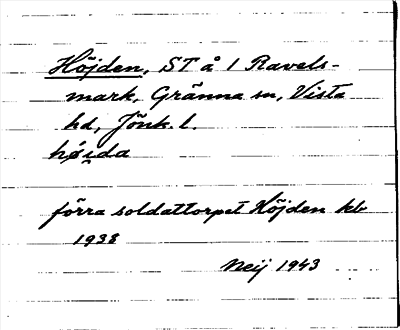 Höjden, ST å 1 Ravels-
mark, Gränna sn, Vista
hd, Jönk. l.
höi̯da
förra soldattorpet Höjden kb
1938
Neij 1943